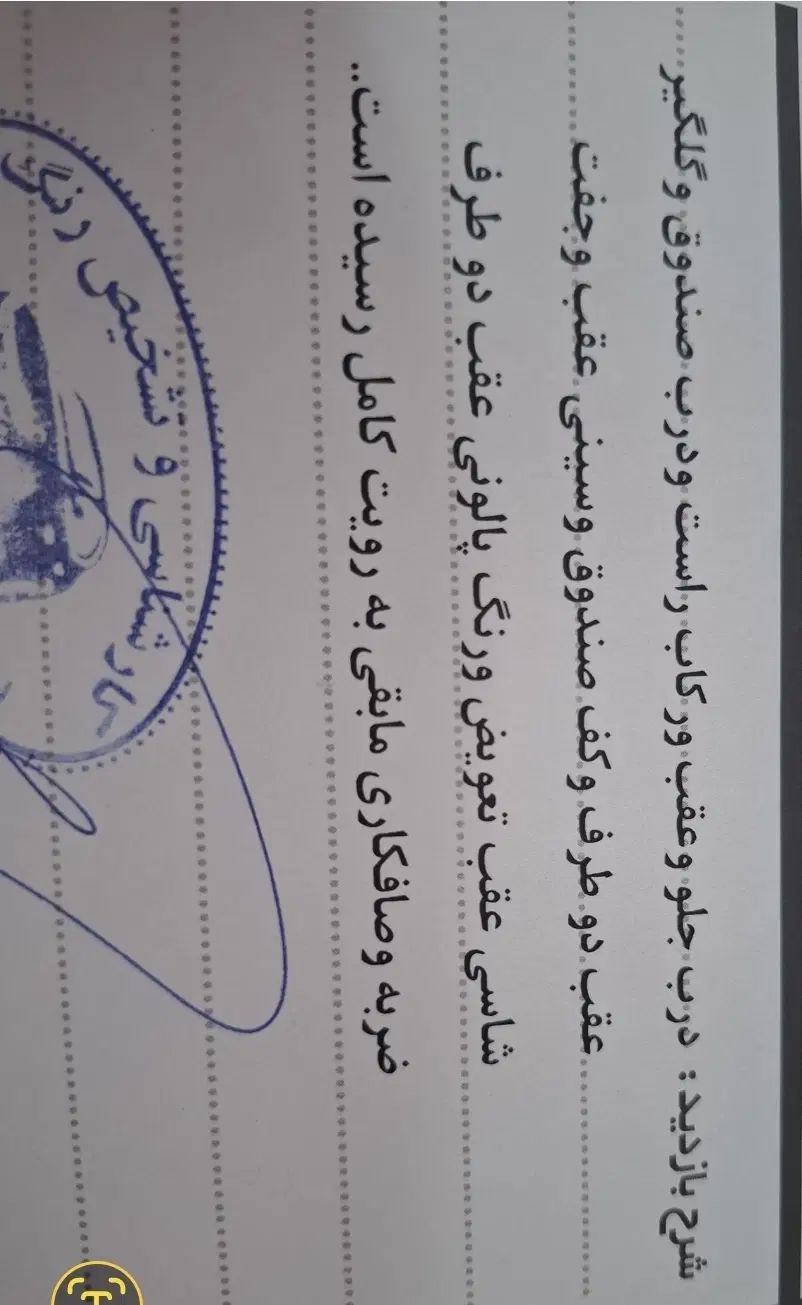 شرح بازدید: درب جلو وعقب ورکاب راست ودرب صندوق وگلگیر
عقب دو طرف وکف صندوق وسینی عقب وجفت
شاسی عقب تعویض ورنگ پالونی عقب دو طرف
ضربه وصافکاری مابقی به رویت کامل رسیده است..
کارشناسی و تشخیص رنگ